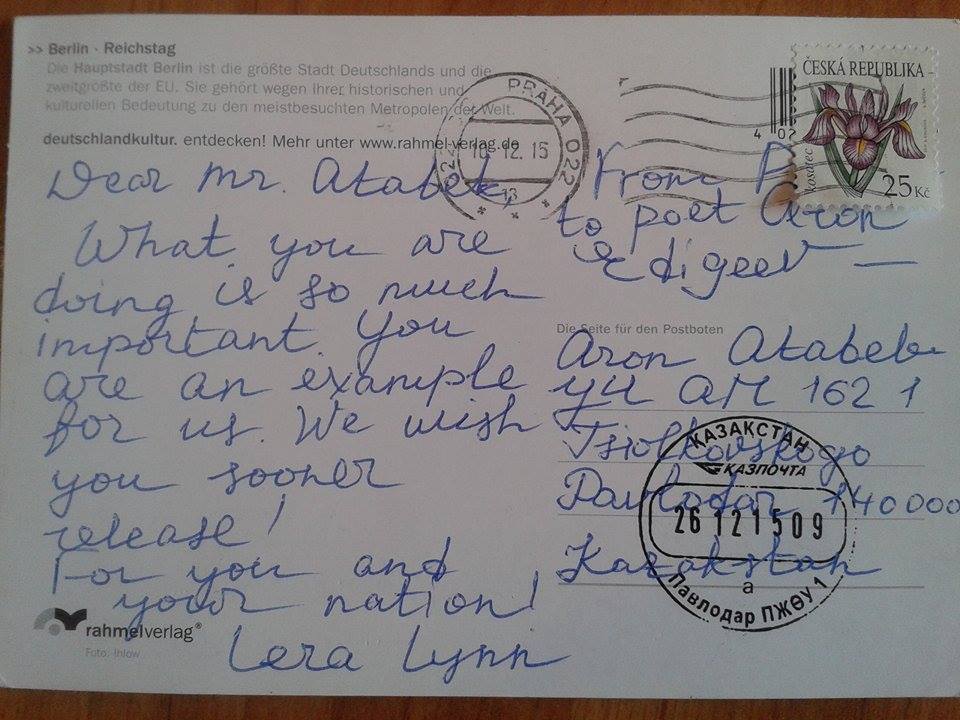 >> Berlin · Reichstag
Die Hauptstadt Berlin ist die größte Stadt Deutschlands und die
zweitgrößte der EU. Sie gehört wegen Ihrer historischen und
kulturellen Bedeutung zu den meistbesuchten Metropolen der Welt.
deutschlandkultur. entdecken! Mehr unter www.rahmel-verlag.de
Dear Mr. Atabek,
What you are
doing is so much
important. You
are an example
for us. We wish
you sooner
release!
For you and
your nation!
Lera Lynn
rahmelverlag®
Foto: Ihlow
PRAHA 022
10.12.15
13
ČESKÁ REPUBLIKA
kosatec
25 Kč
4 02
From
to poet Aron
Edigeev —
Die Seite für den Postboten
Aron Atabek
УЧ АП 162 1
Tsiolkovskogo
Pavlodar 140000
Kazakstan
КАЗАКСТАН
ҚАЗПОЧТА
26 12 15 09
а
Павлодар ПЖӨУ 1